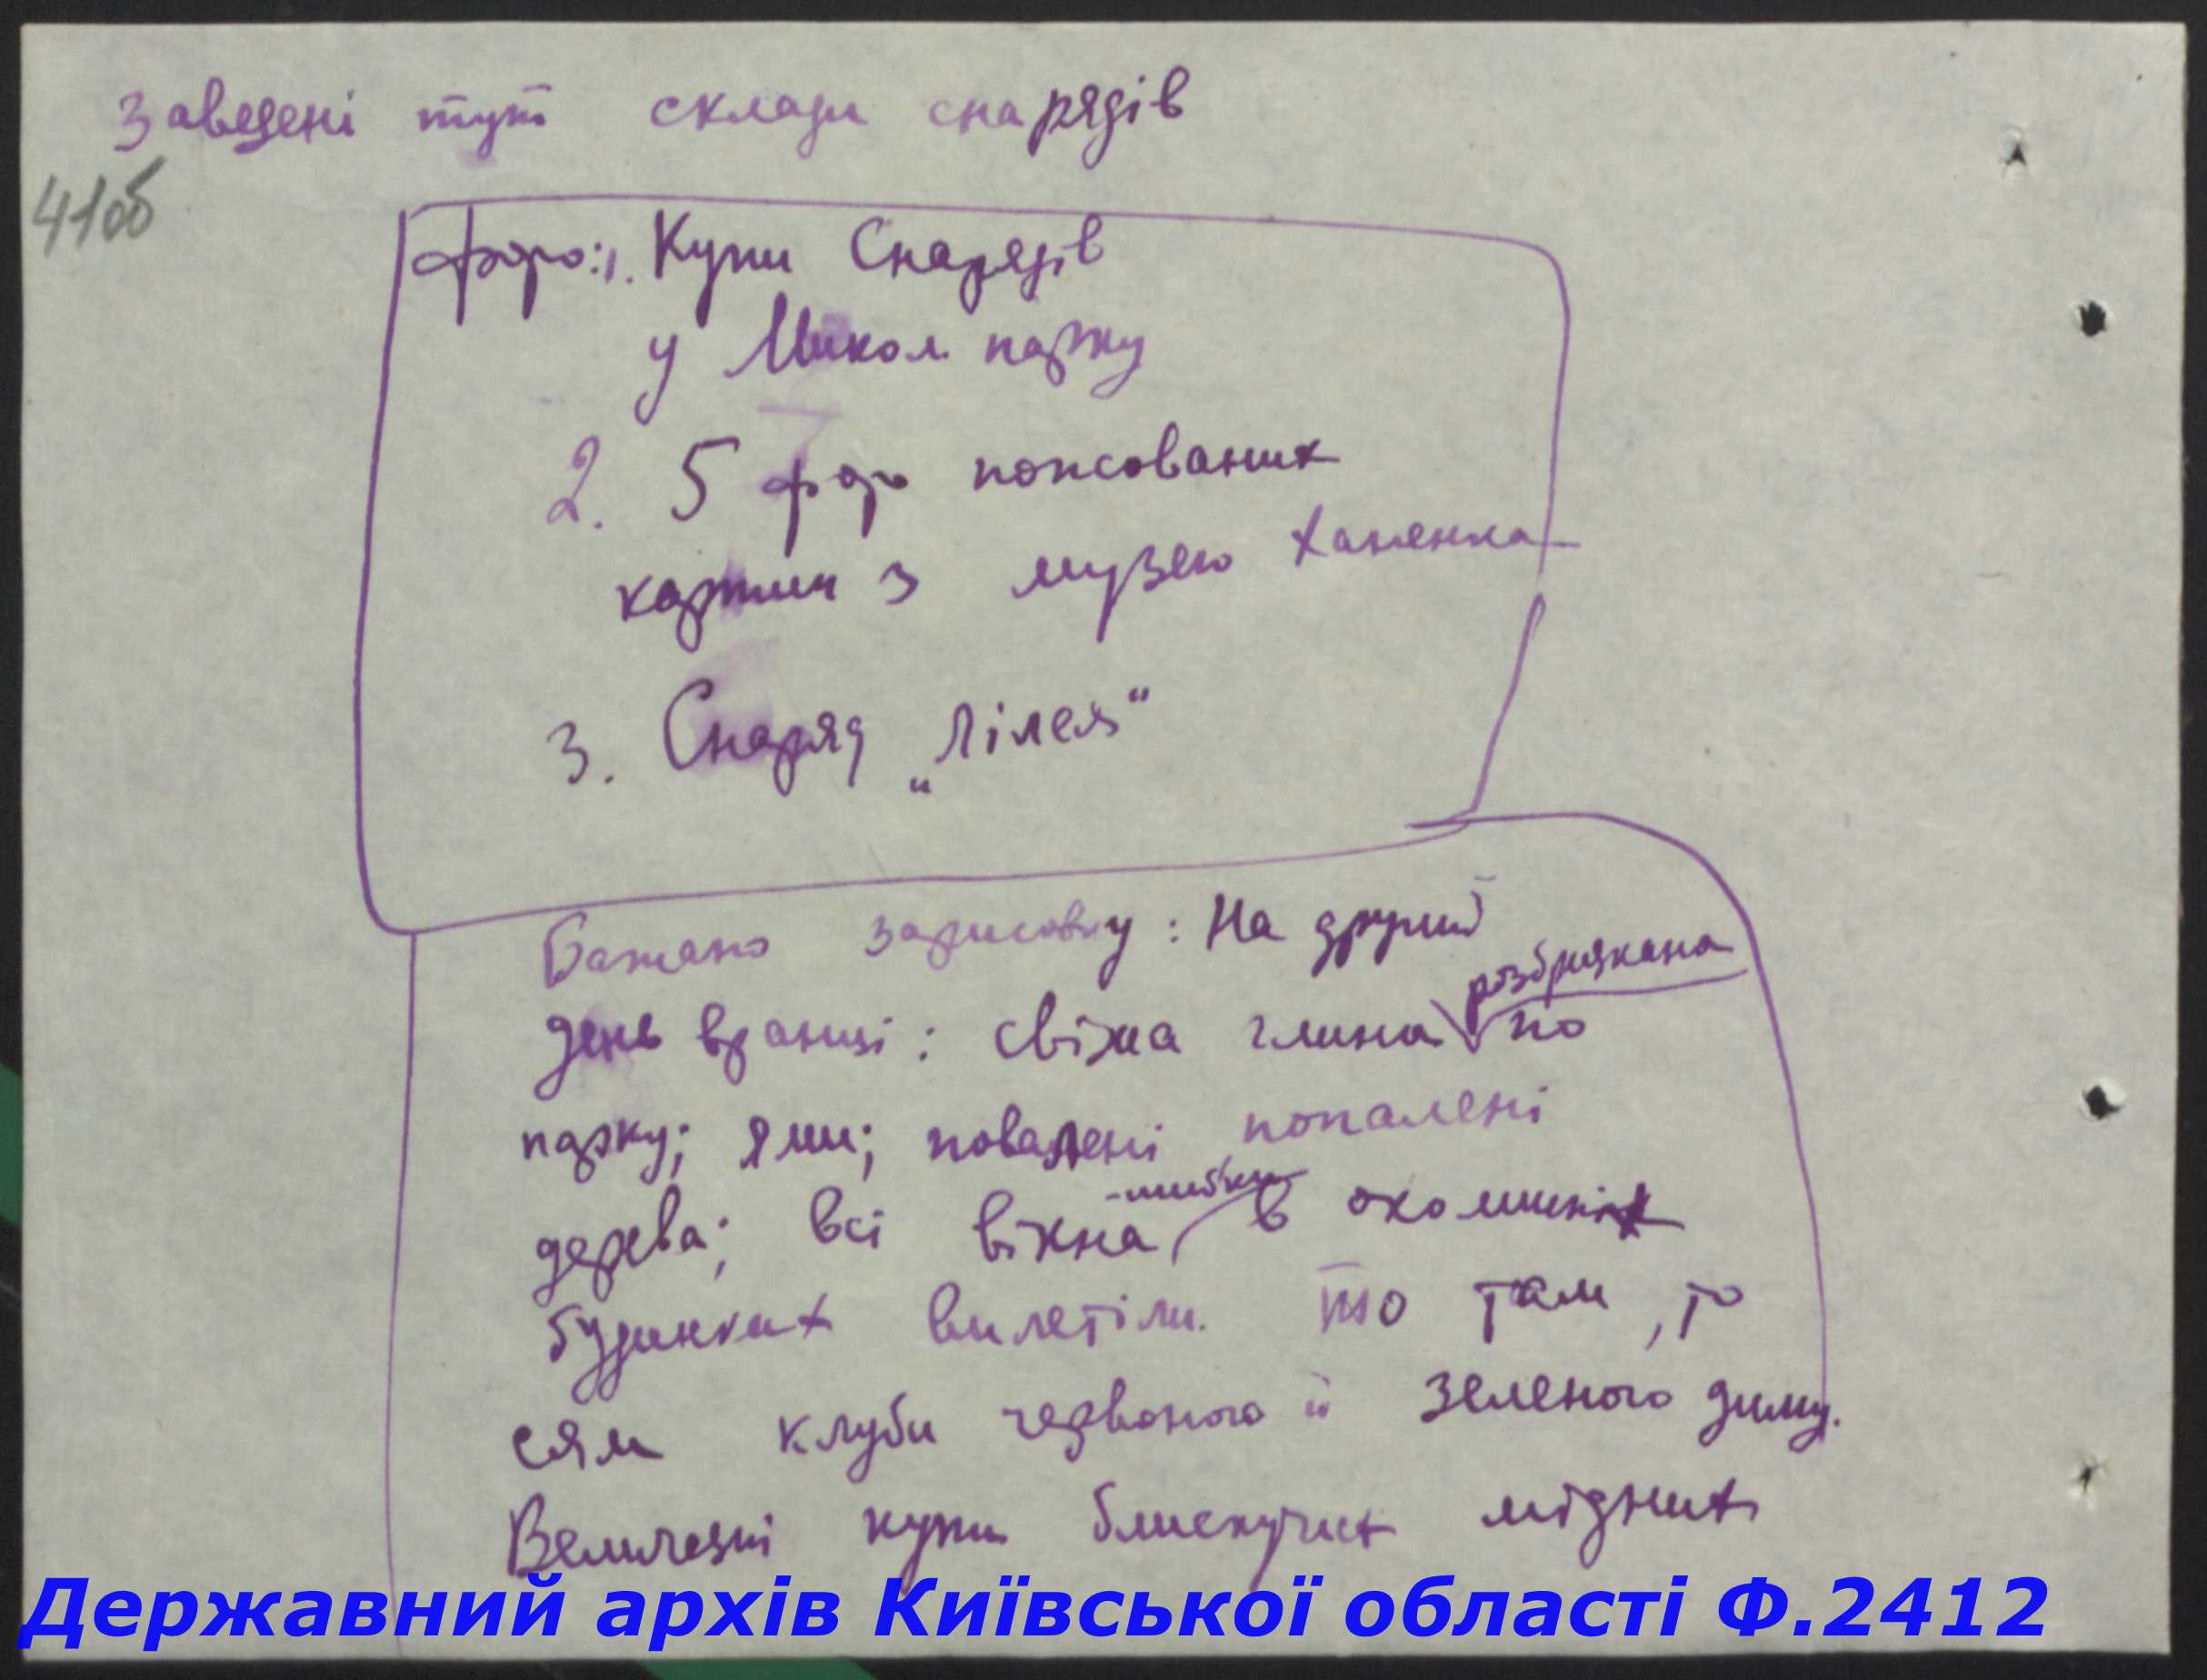 Заведені тут склади снарядів
41об
фото: 1. Купи Снарядів
у Микол. парку
2. 5 фото попсованих
картин з музею Ханенка
3. Снаряд „Лілея“
Бажано зарисовку: На другий
розбризкана
день вранці: свіжа глина по
парку; ями; повалені попалені
шибки
дерева; всі вікна в околишніх
будинках вилетіли. то там, то
сям клуби червоного й зеленого диму.
Величезні купи блискучих мідних
Державний архів Київської області Ф.2412